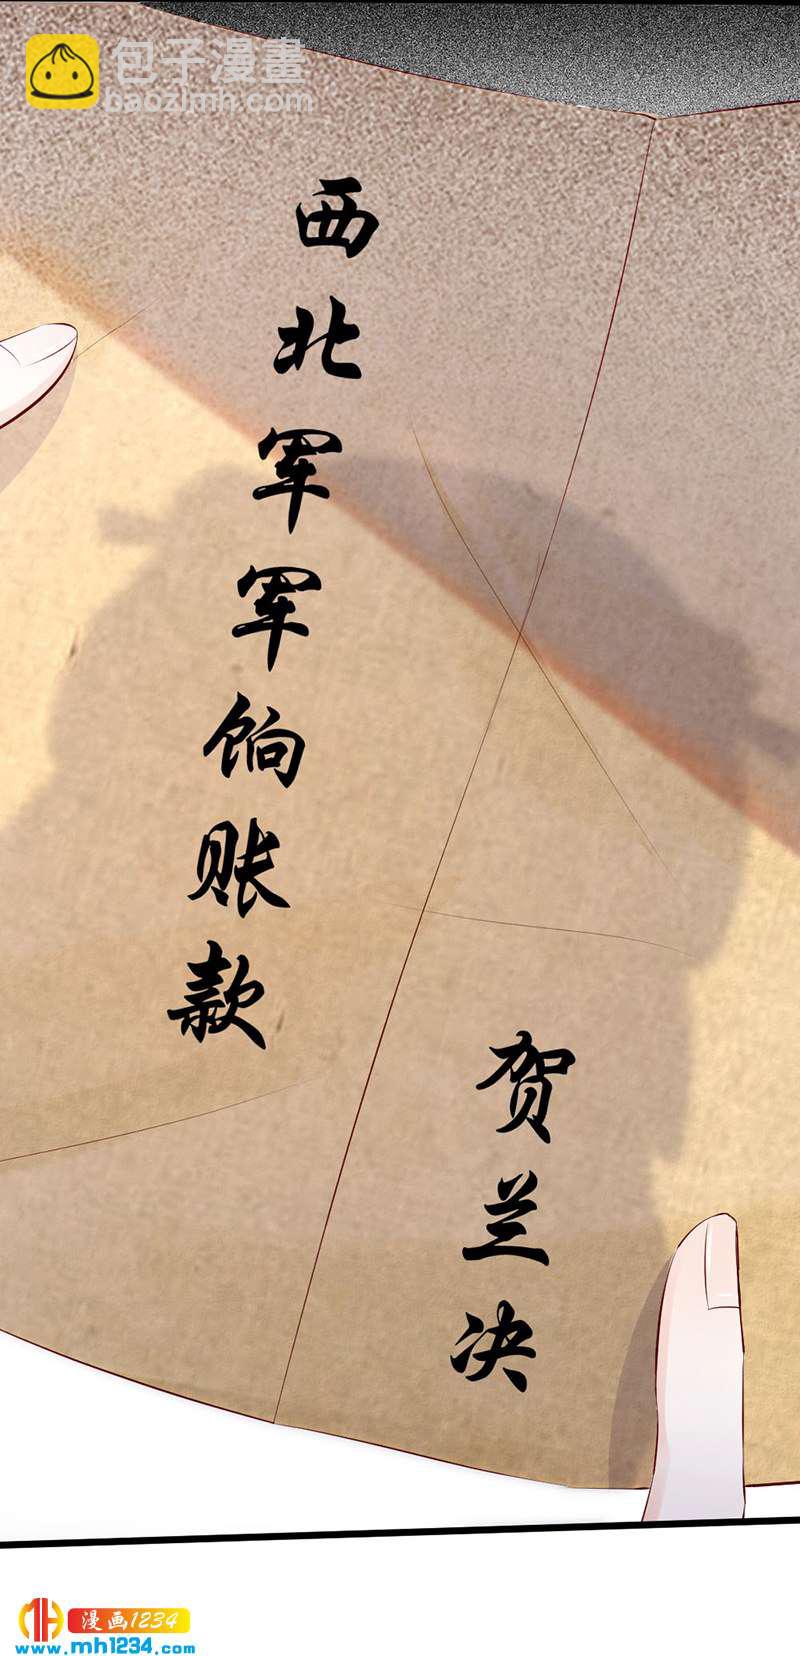 包子漫畫
baozimh.com
西北军军饷账款
贺兰决
漫画1234
www.mh1234.com